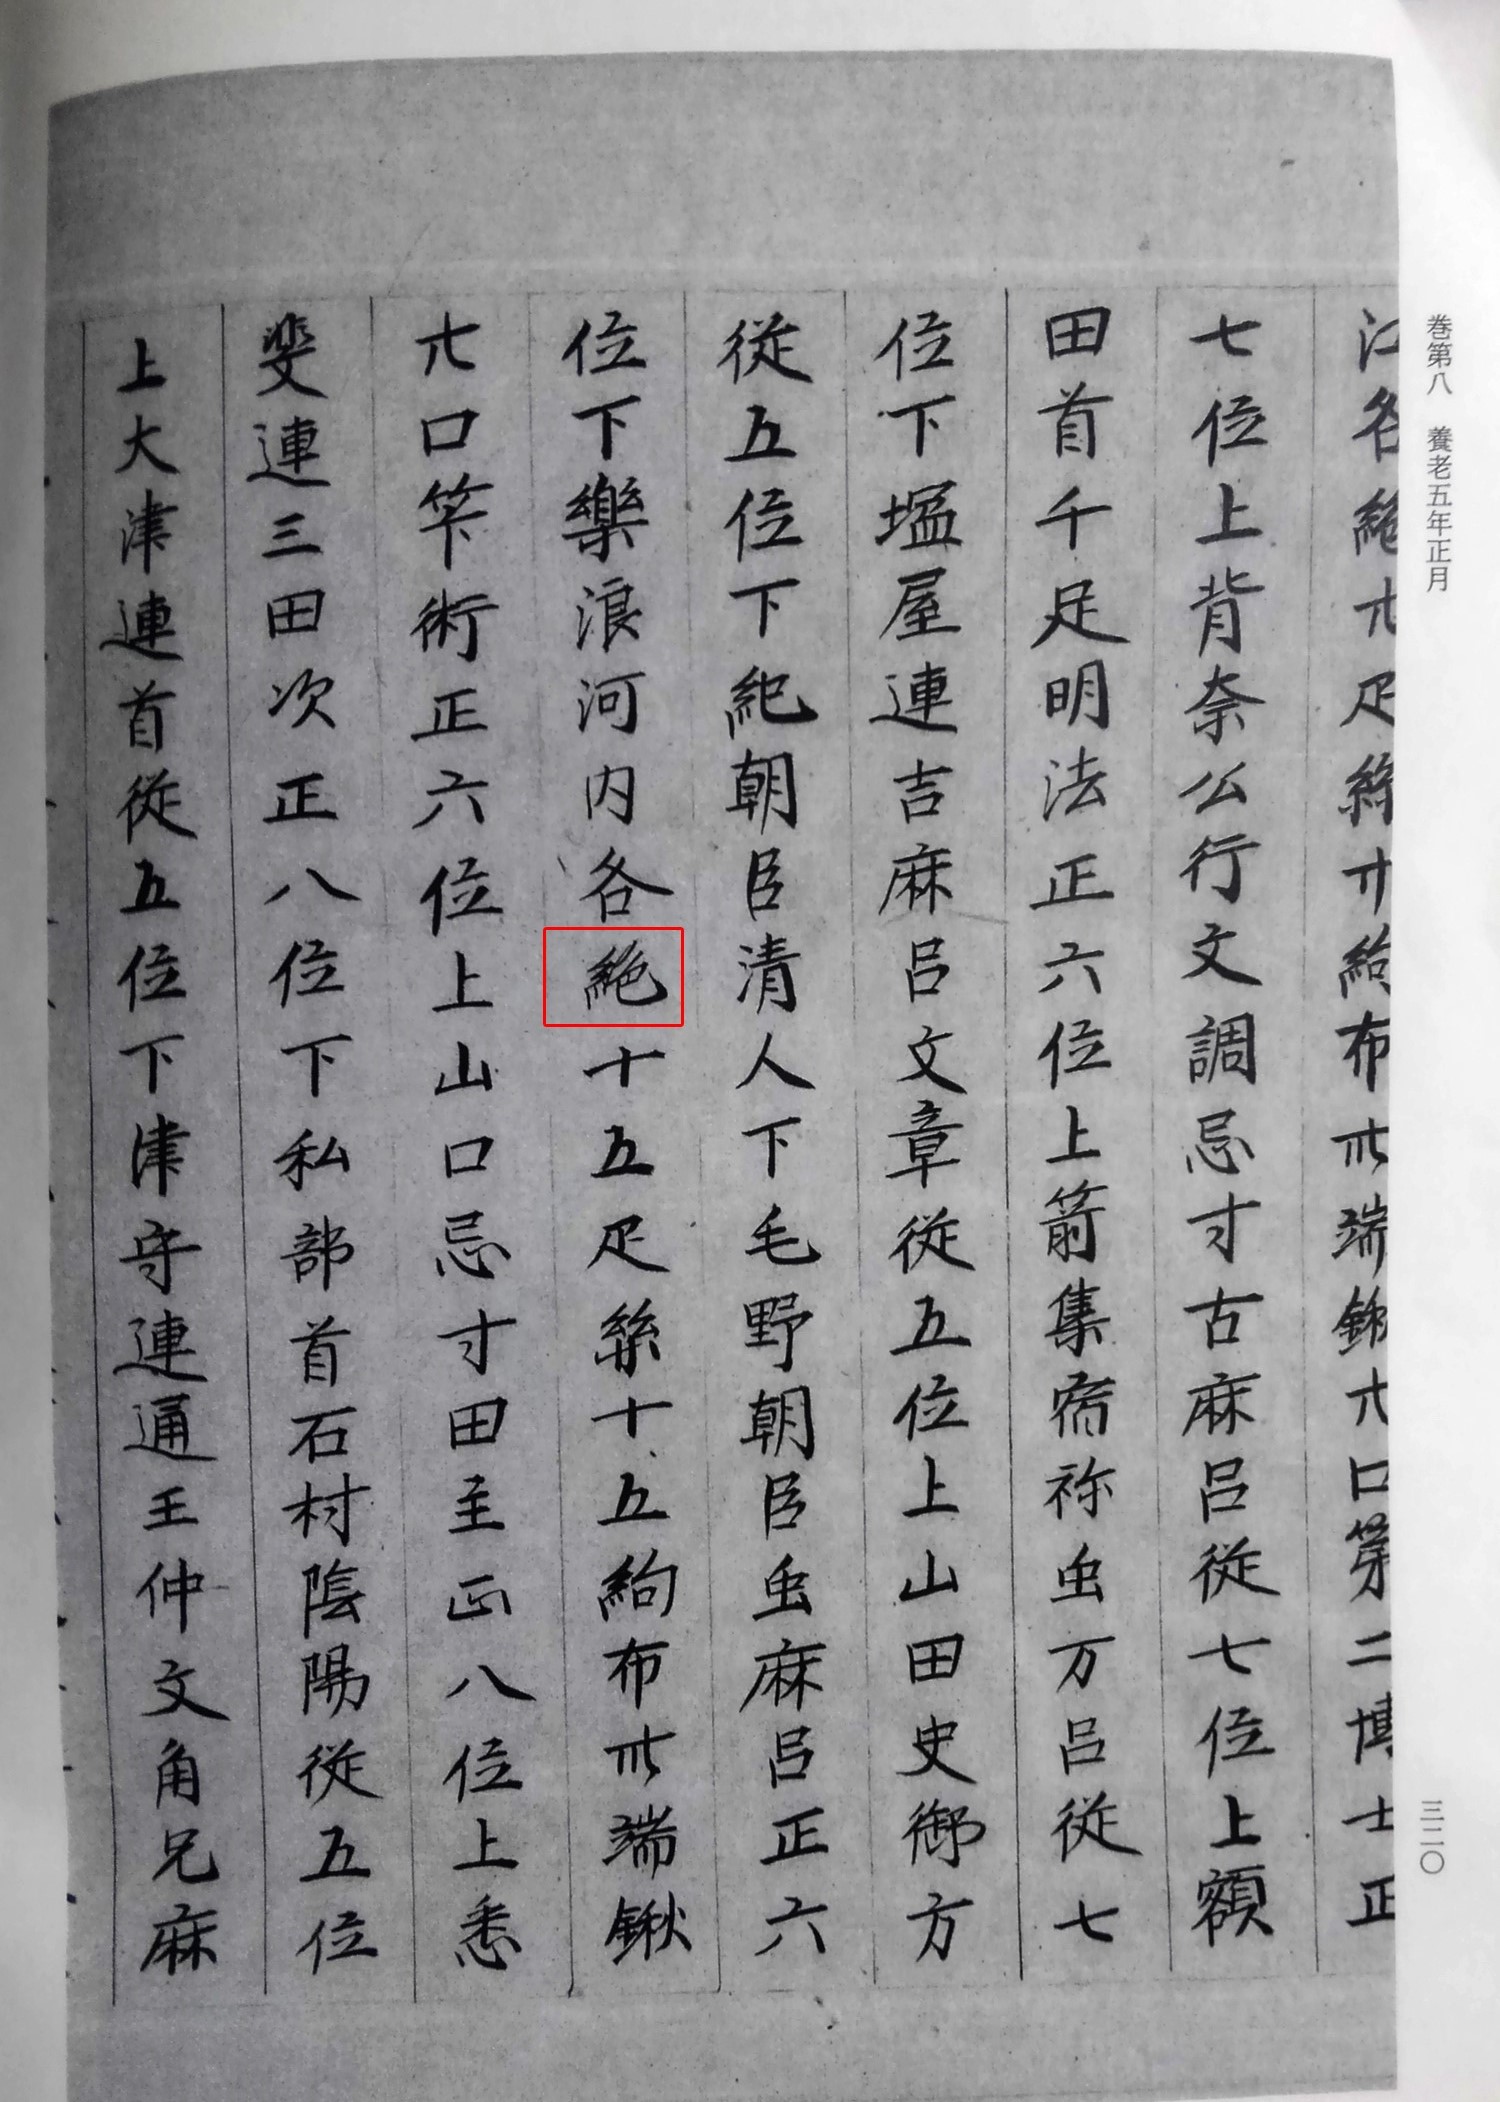 巻第八　養老五年正月
三二〇
江各絁廿疋絲廿絇布卅端鍬廿口第二博士正
七位上背奈公行文調忌寸古麻呂従七位上額
田首千足明法正六位上箭集宿祢虫万呂従七
位下塩屋連吉麻呂文章従五位上山田史御方
従五位下紀朝臣清人下毛野朝臣虫麻呂正六
位下樂浪河内各絁十五疋絲十五絇布卅端鍬
廿口笇術正六位上山口忌寸田主正八位上悉
斐連三田次正八位下私部首石村陰陽従五位
上大津連首従五位下津守連通王仲文角兄麻